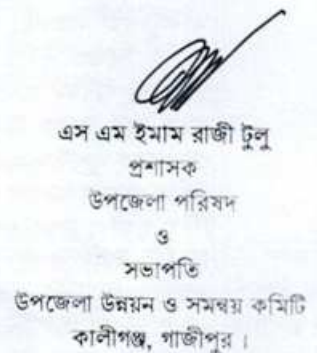 এস এম ইমাম রাজী টুলু
প্রশাসক
উপজেলা পরিষদ
ও
সভাপতি
উপজেলা উন্নয়ন ও সমন্বয় কমিটি
কালীগঞ্জ, গাজীপুর।